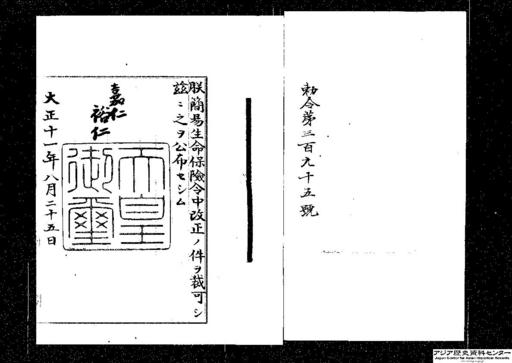 勅令第三百九十五號
朕簡易生命保險令中改正ノ件ヲ裁可シ
茲ニ之ヲ公布セシム
嘉仁
裕仁
天皇
御璽
大正十一年八月二十五日
アジア歴史資料センター
Japan Center for Asian Historical Records